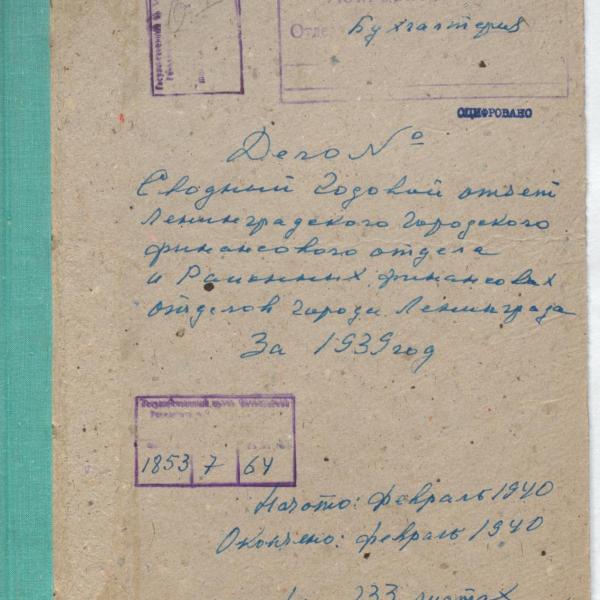 Отде
Бухгалтерия
ОЦИФРОВАНО
Дело №
Сводный Годовой отчет
Ленинградского Городского
финансового отдела
и Районных финансовых
отделов города Ленинграда
За 1939 год
Государственный
1853 7 64
Начато: февраль 1940
Окончено: февраль 1940
233 листах